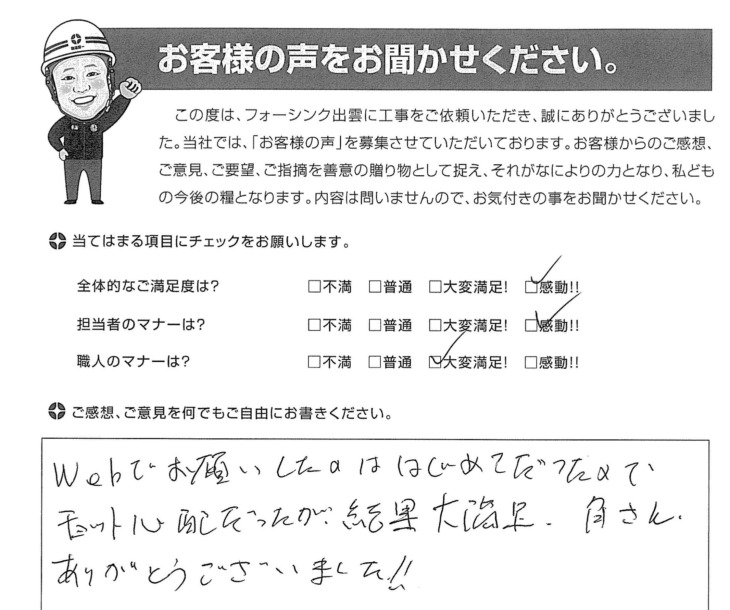 お客様の声をお聞かせください。
この度は、フォーシンク出雲に工事をご依頼いただき、誠にありがとうございまし
た。当社では、「お客様の声」を募集させていただいております。お客様からのご感想、
ご意見、ご要望、ご指摘を善意の贈り物として捉え、それがなによりの力となり、私ども
の今後の糧となります。内容は問いませんので、お気付きの事をお聞かせください。
当てはまる項目にチェックをお願いします。
全体的なご満足度は? □不満 □普通 □大変満足! ☑感動!!
担当者のマナーは? □不満 □普通 □大変満足! ☑感動!!
職人のマナーは? □不満 □普通 ☑大変満足! □感動!!
ご感想、ご意見を何でもご自由にお書きください。
Webでお願いしたのははじめてだったので
チョット心配だったが、結果大満足。角さん、
ありがとうございました!!